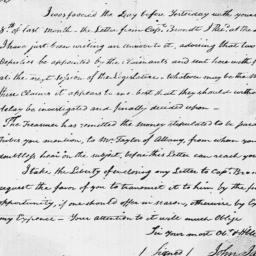 I was favored the Day before Yesterday with your
8th of last month. The Letter from Capt. Brandt I Recd at the
I have just been writing an answer to it, advising that two
Deputies be appointed by the Claimants and sent here with
at the next session of the Legislature. Whatever may be
these Claims it appears to me best that they should with
delay be investigated and finally decided upon
The Treasurer has remitted the money stipulated to be paid
Tribes you mention, to Mr. Taylor of Albany, from whom you
doubtless hear on the subject, before this Letter can reach you
I take the Liberty of enclosing my Letter to Capt. Brandt
request the favor of you to transmit it to him by the
opportunity, if one should offer in season, otherwise by
my Expence. Your attention to it will much Oblige
Sir Your most Ob. & Hble
(Signed) John Jay